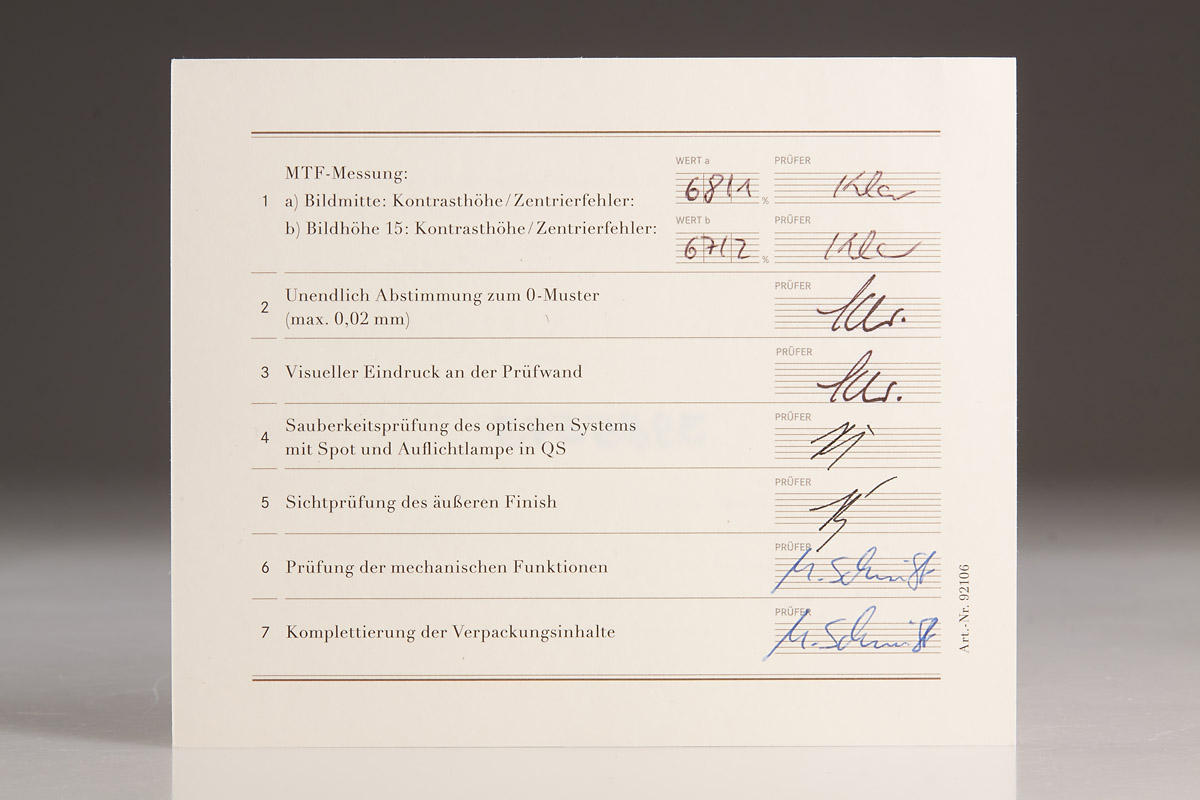 WERT a PRÜFER
MTF-Messung:
1 a) Bildmitte: Kontrasthöhe/Zentrierfehler: 68/1 % Kla
b) Bildhöhe 15: Kontrasthöhe/Zentrierfehler:
WERT b PRÜFER
67/2 % Kla
PRÜFER
2 Unendlich Abstimmung zum 0-Muster
(max. 0,02 mm)
PRÜFER
3 Visueller Eindruck an der Prüfwand
PRÜFER
4 Sauberkeitsprüfung des optischen Systems
mit Spot und Auflichtlampe in QS
PRÜFER
5 Sichtprüfung des äußeren Finish
PRÜFER
6 Prüfung der mechanischen Funktionen M. Schmidt
PRÜFER
7 Komplettierung der Verpackungsinhalte M. Schmidt
Art.-Nr. 92106